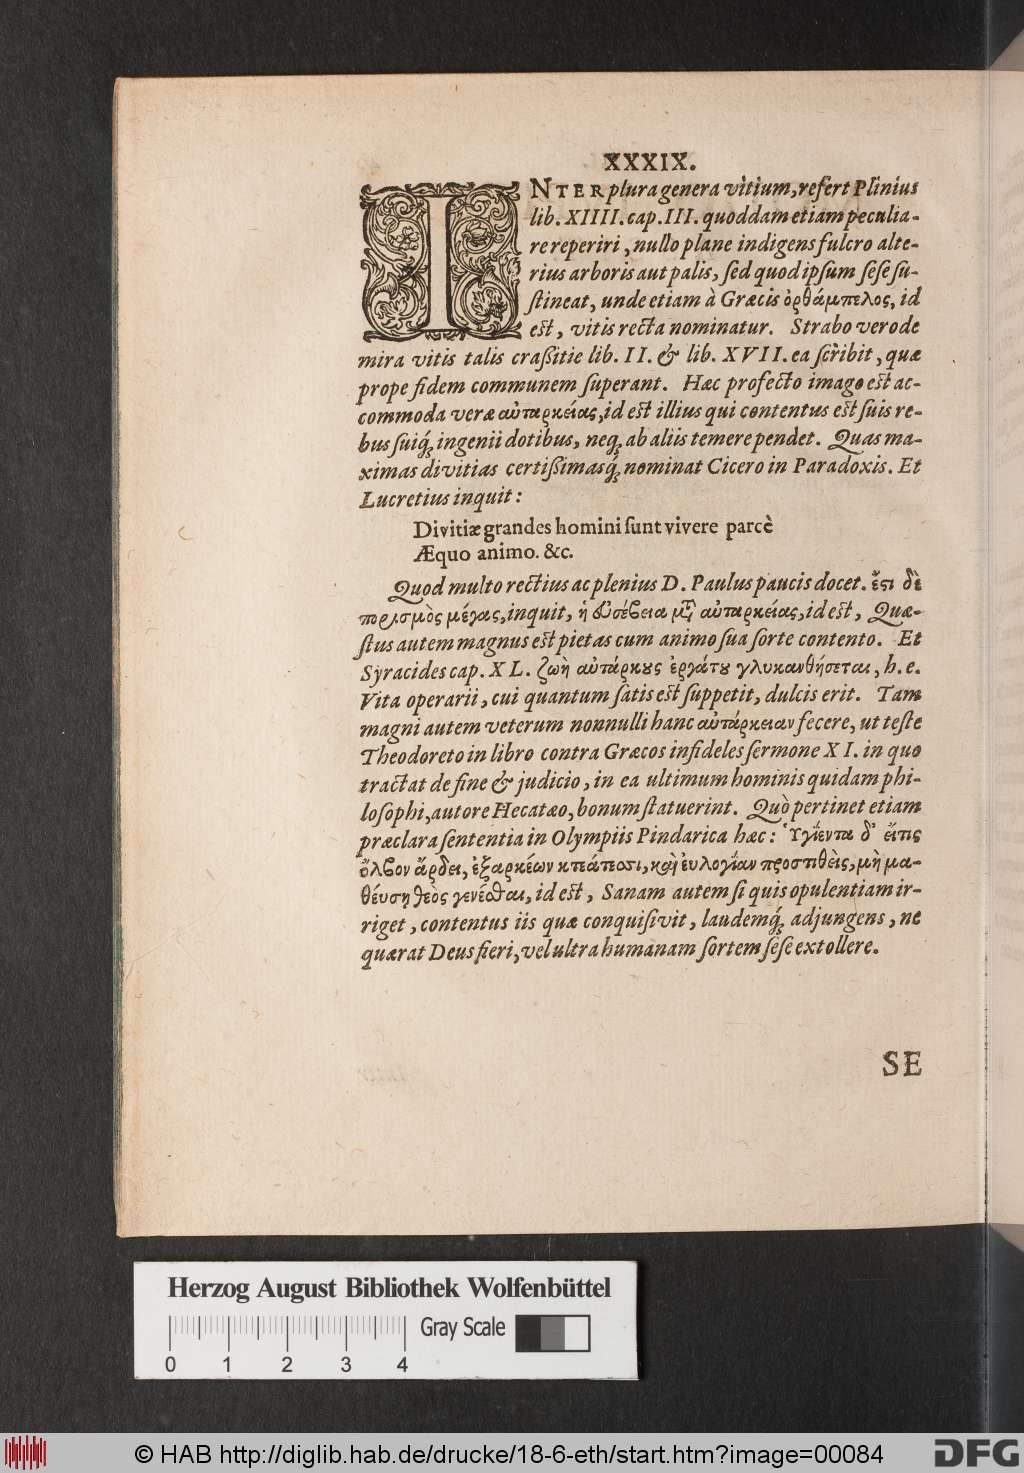 XXXIX.
INTER plura genera vitium, refert Plinius
lib. XIIII. cap. III. quoddam etiam peculia-
re reperiri, nullo plane indigens fulcro alte-
rius arboris aut palis, ſed quod ipſum ſeſe ſu-
ſtineat, unde etiam à Græcis ὀρθάμπελος, id
est, vitis recta nominatur. Strabo vero de
mira vitis talis craßitie lib. II. & lib. XVII. ea ſcribit, quæ
prope fidem communem ſuperant. Hæc profecto imago est ac-
commoda veræ αὐταρκείας, id est illius qui contentus est ſuis re-
bus ſuiq́; ingenii dotibus, neq; ab aliis temere pendet. Quas ma-
ximas divitias certißimasq́; nominat Cicero in Paradoxis. Et
Lucretius inquit:
Divitiæ grandes homini ſunt vivere parcè
Æquo animo. &c.
Quod multo rectius ac plenius D. Paulus paucis docet. ἔστι δὲ
πορισμὸς μέγας, inquit, ἡ εὐσέβεια μετ' αὐταρκείας, id est, Quæ-
ſtus autem magnus est pietas cum animo ſua ſorte contento. Et
Syracides cap. XL. ζωὴ αὐτάρκους ἐργάτου γλυκανθήσεται, h. e.
Vita operarii, cui quantum ſatis est ſuppetit, dulcis erit. Tam
magni autem veterum nonnulli hanc αὐτάρκειαν fecere, ut teſte
Theodoreto in libro contra Græcos infideles ſermone XI. in quo
tractat de fine & judicio, in ea ultimum hominis quidam phi-
loſophi, autore Hecatæo, bonum ſtatuerint. Quò pertinet etiam
præclara ſententia in Olympiis Pindarica hæc: Ὑγίεντα δ' εἴτις
ὄλβον ἄρδει, ἐξαρκέων κτεάτεσσι, καὶ εὐλογίαν προστιθεὶς, μὴ μα-
θέυσῃ θεὸς γενέσθαι, id est, Sanam autem ſi quis opulentiam ir-
riget, contentus iis quæ conquiſivit, laudemq́; adjungens, ne
quærat Deus fieri, vel ultra humanam ſortem ſeſe extollere.
SE
Herzog August Bibliothek Wolfenbüttel
Gray Scale
0 1 2 3 4
© HAB http://diglib.hab.de/drucke/18-6-eth/start.htm?image=00084
DFG